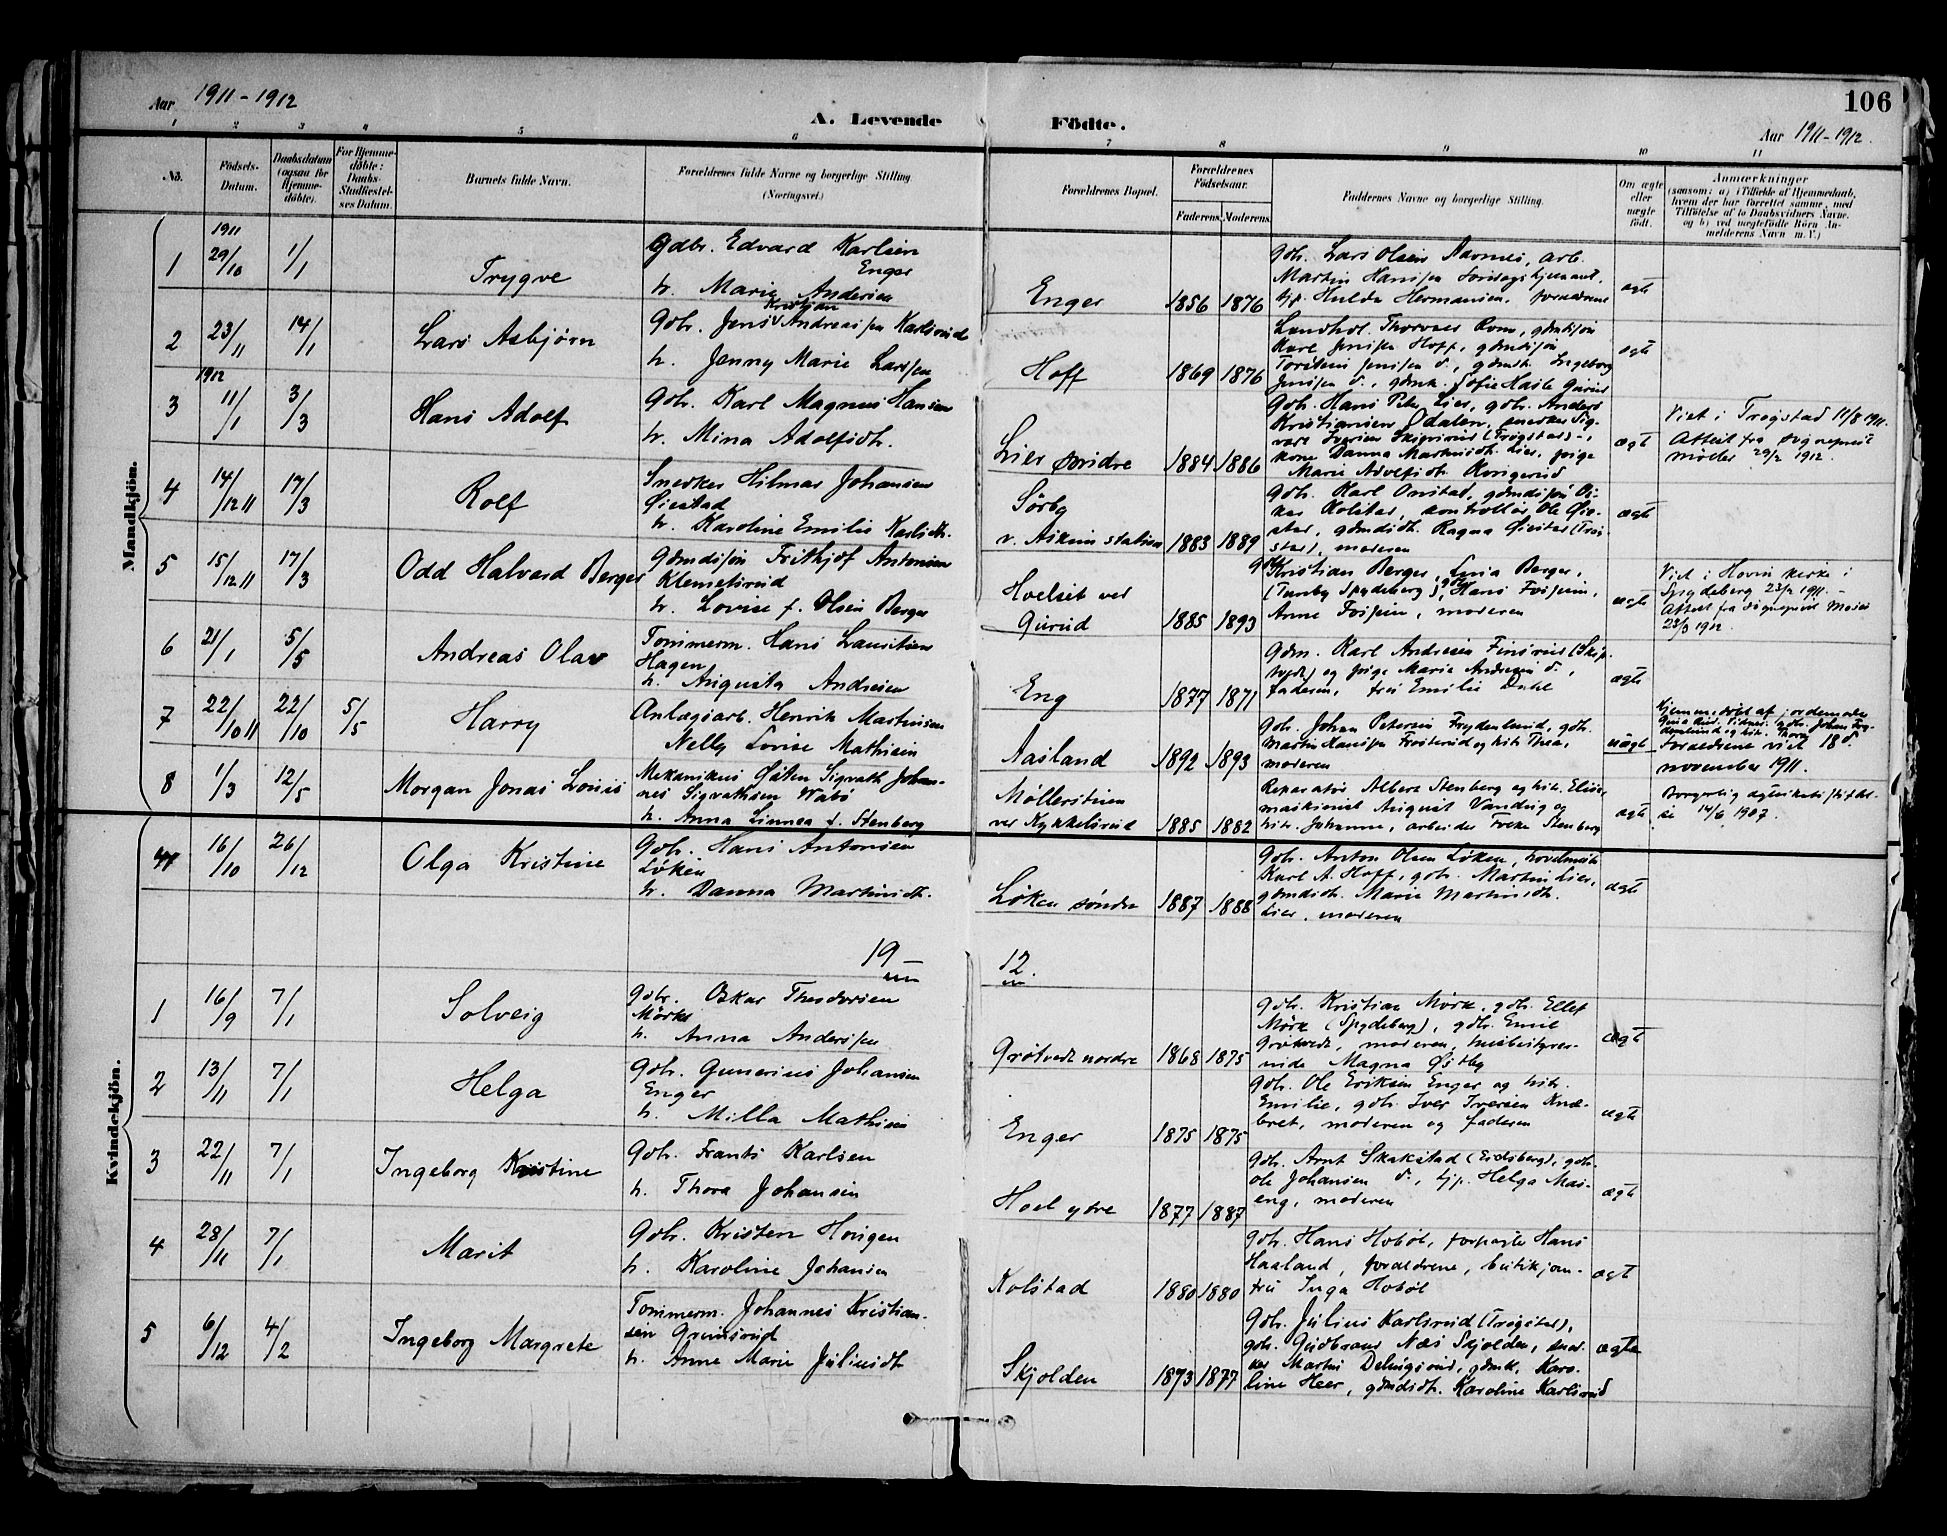 106
Aar 1911-1912
A. Levende Födte.
Aar 1911-1912.
1 2 3 4 5 6 7 8 9 10 11
No.
Födsels-Datum.
Daabsdatum (ogsaa for Hjemme-døbte).
For Hjemme-døbte: Daabs-Stadfæstel-ses Datum.
Barnets fulde Navn.
Forældrenes fulde Navne og borgerlige Stilling (Næringsvei.)
Forældrenes Bopæl.
Forældrenes Fødselsaar.
Faderens. Moderens.
Faddernes Navne og borgerlige Stilling.
Om ægte eller uægte født.
Anmærkninger
(saasom: a) i Tilfælde af Hjemmedaab, hvem der har forrettet samme, med Tilføielse af to Daabsvidners Navne. og b) ved uægtefødte Börn An-melderens Navn m. V.)
Mandkjön.
1911
1 29/10 1/1 Trygve
Gdbr. Edvard Karlsen
Enger
h. Marie Andersen
Enger 1856 1876
Gdbr. Lars Olsen Ravnes, arb.
Martin Hansen
tjp. Hulda Hermansen, forældrene
ægte
2 23/11 14/1 Lars Asbjørn
Gdbr. Jens Kristian Andreassen Karlsrud
h. Jenny Marie Larssen
Hoff 1869 1876
Landhdl. Thorvald Rom, gdmdssøn
Karl Jenssen Hoff, gdmdssøn
Torstein Jenssen d., gdmdk. Ingeborg
Jenssen d., gdmk. Sofie Hasle
ægte
1912
3 11/1 3/3 Hans Adolf
Gdbr. Karl Magnus Hansen
h. Mina Adolfsdtr.
Lier søndre 1884 1886
Gdbr. Hans Peter Lier, gdbr. Anders
Kristiansen Ødalen, snekker Sig-
vart Iversen (Trøgstad),
kone Danna Martinsdtr. Lier, pige
Marie Adolfsdtr.
ægte
Viet i Trøgstad 11/8 1911.
Attest fra sogneprest
Møller 29/2 1912.
4 14/12 11 17/3 Rolf
Snedker Hilmar Johansen
Øiestad
h. Karoline Emilie Karlsdtr.
Sørby
v. Askim station 1883 1889
Gdbr. Karl Onstad, gdmdssøn Os-
kar Kolstad, kontrollør Ole Øie-
stad, gdmdsdtr. Ragna Øiestad (Trøg-
stad), moderen
ægte
5 15/12 11 17/3 Odd Halvard Berger
Gdmdssøn Frithjof Antonsen
Klemetsrud
h. Lovise f. Olsen Berger
Hoelset ved
Gurud 1885 1893
Kristian Berger, Lina Berger,
(Spydeberg), Hans Fossen,
Anne Fossen, moderen
ægte
Viet i Hovin kirke i
Spydeberg 1911 -
Attest fra sogneprest
23/3 1912
6 21/1 5/5 Andreas Olav
Tømmerm. Hans Lauritsen
Hagen
h. Augusta Andresen
Eng 1877 1871
Gdm. Karl Andresen Finsrud (Skip-
tvedt) og pige Marie Andresen d.,
faderen, frk. Emilie Dahl
ægte
7 22/10 11 22/10 5/5 Harry
Anlægsarb. Henrik Martinsen
Nelly Lovise Mathisen
Aasland 1892 1893
Gdbr. Johan Petersen Frydenlund, gdbr.
Martin Hansen og hustr. Thea,
moderen
uægte
Hjemmedøbt af jordemoder
Vidner: gdbr. Johan Fry-
denlund og hustr. Thora
Forældrene viet 18d.
november 1911.
8 1/3 12/5 Morgan Jonas Louis
Mekanikus Østen Sigvath Johan-
nes Sigvathsen Wabø
h. Anna Linnea f. Stenberg
Møllerstuen
ved Kykkelsrud 1885 1882
Reparatør Albert Stenberg og hustr. Elise,
maskinist August Vanding og
hustr. Johanne, arbeider Stenberg
ægte
Borgerlig ægteskabsstiftel-
se 14/6 1907.
Kvindekjön.
16/10 26/12 Olga Kristine
Gdbr. Hans Antonsen
Løken
h. Danna Martinsdtr.
Løken søndre 1887 1888
Gdbr. Anton Olsen Løken,
Karl A. Hoff, gdbr. Martin Lier,
gdmdsdtr. Marie Martinsdtr.
Lier, moderen
ægte
19 12.
1 16/9 7/1 Solveig
Gdbr. Oskar Theodorsen
Mørk
h. Anna Anderssen
Grøtvedt nordre 1868 1875
Gdbr. Kristian Mørk, gdbr. Ellef
Mørk (Spydeberg), gdbr. Emil
Grøtvedt, moderen, husbestyrer-
inde Magna Østby
ægte
2 13/11 7/1 Helga
Gdbr. Gunerius Johansen
Enger
h. Milla Mathisen
Enger 1875 1875
Gdbr. Ole Eriksen Enger og hustr.
Emilie, gdbr. Iver Iversen Knæ-
bret, moderen og faderen
ægte
3 22/11 7/1 Ingeborg Kristine
Gdbr. Frants Karlsen
h. Thora Johansen
Hoel ydre 1877 1887
Gdbr. Arnt Skakstad (Eidsberg), gdbr.
Ole Johansen d., tjp. Helga Mas-
eng, moderen
ægte
4 28/11 7/1 Marit
Gdbr. Kristen Haugen
h. Karoline Johansen
Kolstad 1880 1880
Gdbr. Hans Hobøl, forpagter Hans
Haaland, forældrene, butikjom-
fru Inga Hobøl
ægte
5 6/12 4/2 Ingeborg Margrete
Tømmerm. Johannes Kristian-
sen Grimsrud
h. Anne Marie Juliusdtr
Skjolden 1873 1877
Gdbr. Julius Karlsrud (Trøgstad),
gdbr. Gudbrand Næs Skjolden, sned-
ker Martin Delingsrud, gdmk. Karo-
line Heer, gdmdsdtr. Karoline Karlsrud
ægte